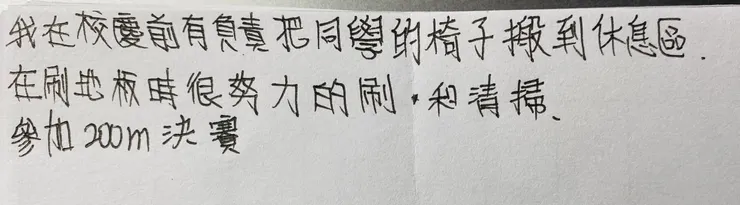 我在校慶前有負責把同學的椅子搬到休息區.
在刷地板時很努力的刷,和清掃、
參加200m決賽